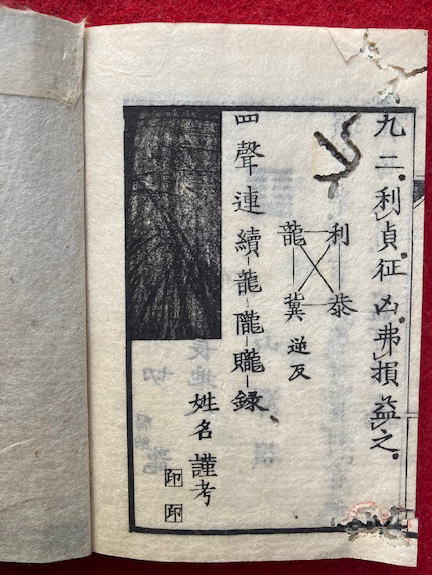 九二。利」貞征凶。弗」損益」之。
利 恭
龍 冀 逆反
四聲連續-龍-隴-贚-録
姓名謹考
印 印